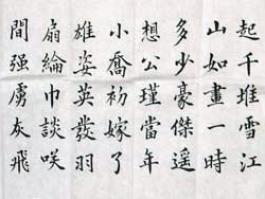 起千堆雪江
山如畫一時
多少豪傑遥
想公瑾當年
小喬初嫁了
雄姿英發羽
扇綸巾談咲
間强虜灰飛